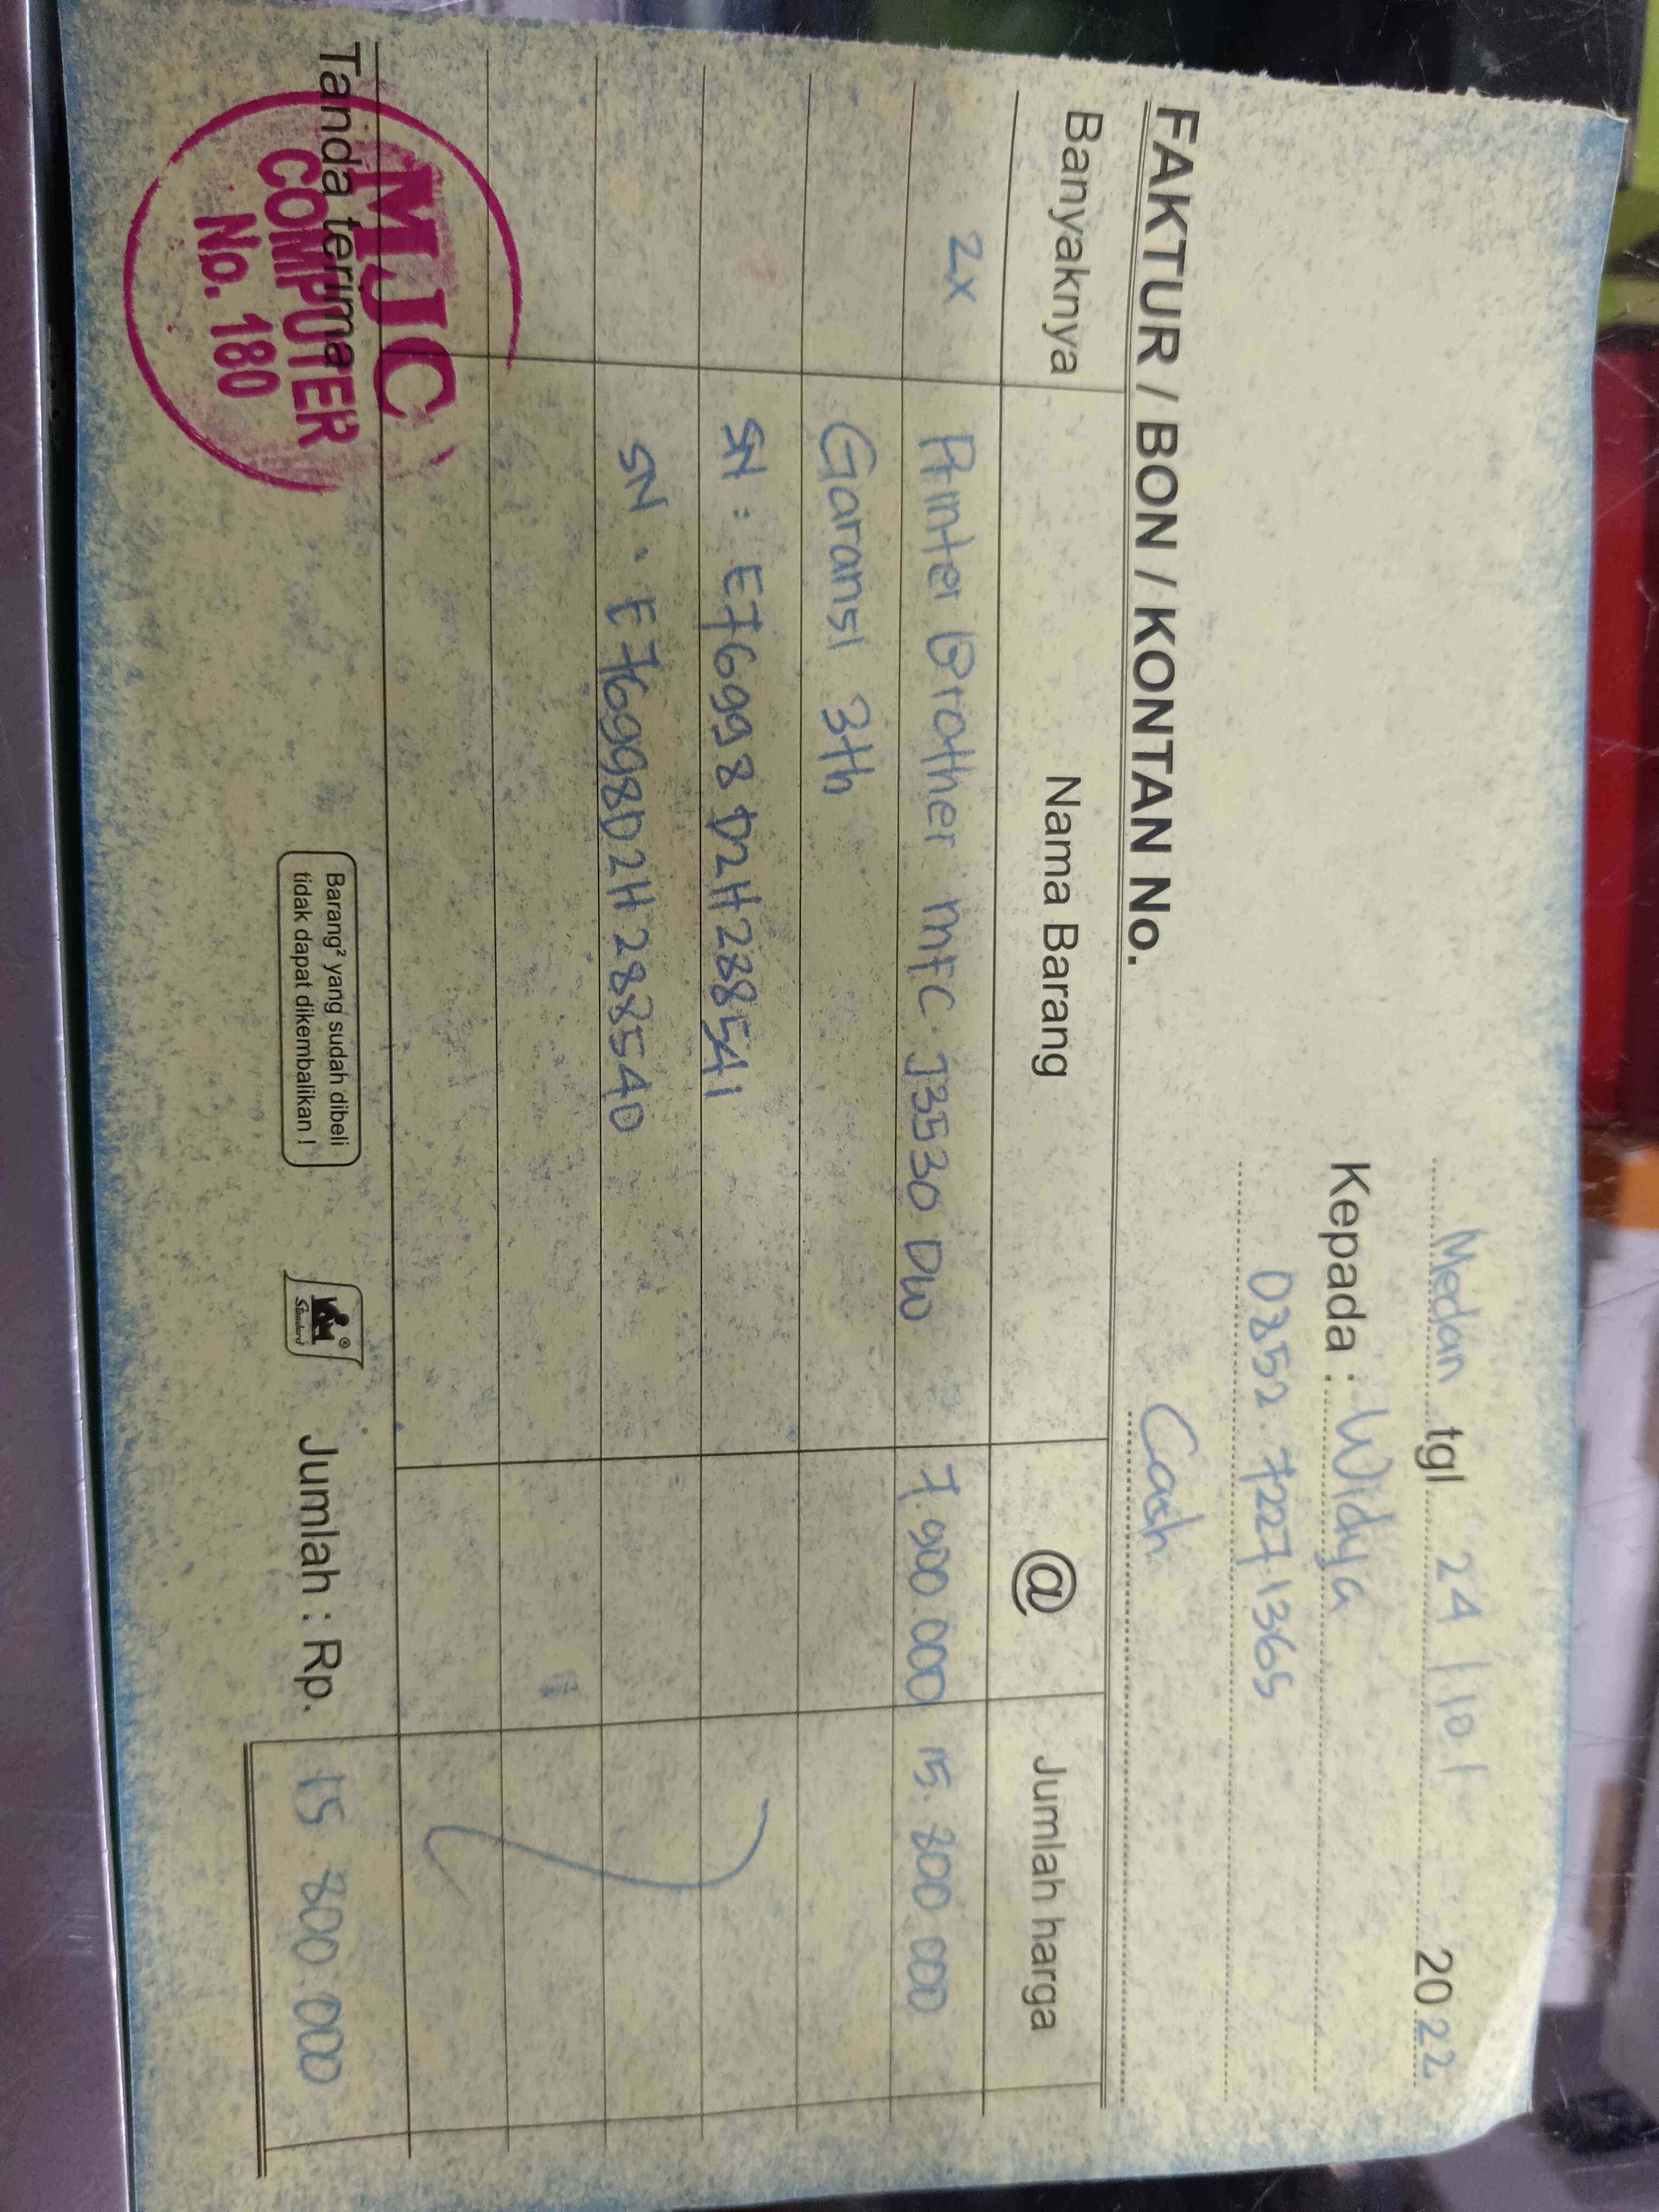 Medan tgl 24/10/ 2022
Kepada : Widya
0852 72271365
Cash
FAKTUR / BON / KONTAN No.
Banyaknya Nama Barang @ Jumlah harga
2x Printer Brother MFC. J3530 DW 7.900.000 15.800 000
Garansi 3th
SN : E76998D2H288541
SN . E76998D2H288540
Tanda terima
MJC
COMPUTER
No. 180
Barang² yang sudah dibeli
tidak dapat dikembalikan !
Standard ®
Jumlah : Rp. 15.800.000